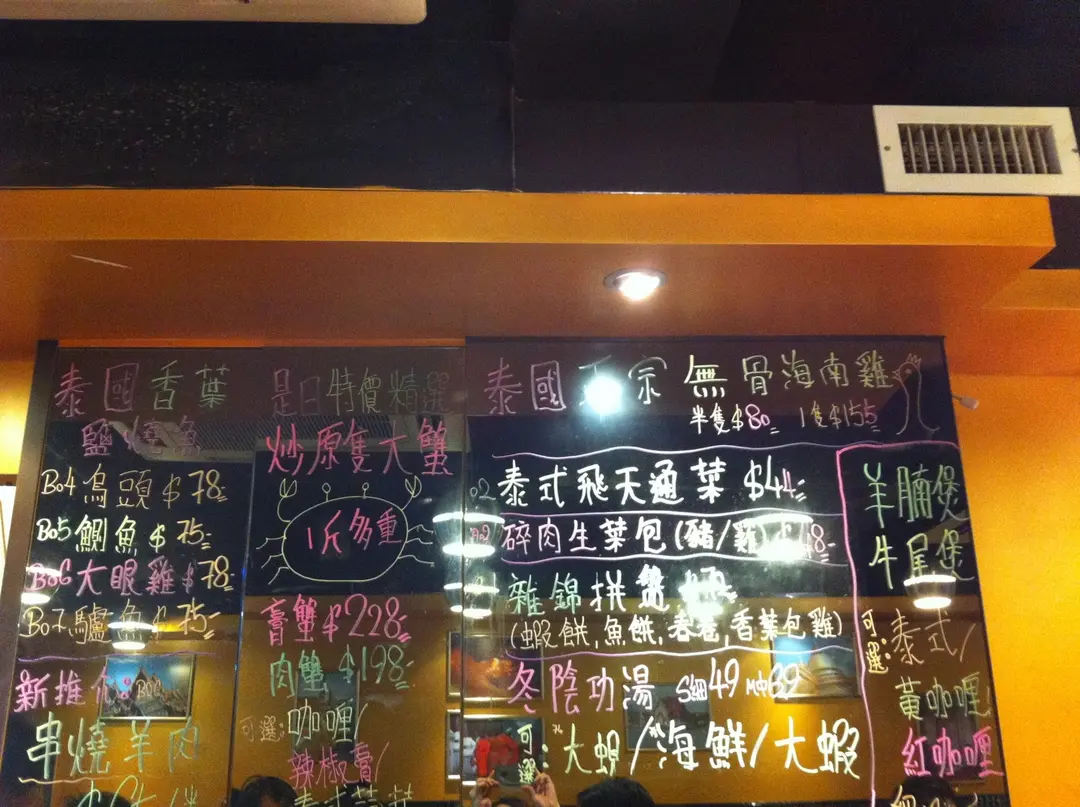 泰國香葉
鹽燒魚
B04 烏頭 $78
B05 鯏魚 $75
B06 大眼雞 $78
B07 鱸魚 $75
新推介
串燒羊肉
是日特價精選
炒原隻大蟹
1斤多重
膏蟹 $228
肉蟹 $198
可選:咖喱/
辣椒膏/
泰國正宗無骨海南雞
半隻$80 1隻$155
泰式飛天通菜 $44
碎肉生菜包(豬/雞) 48
雜錦拼盤
(蝦餅,魚餅,春卷,香葉包雞)
冬陰功湯 S細49 M中69
可選:大蜆/海鮮/大蝦
羊腩煲
牛尾煲
可選:泰式/
黃咖喱/
紅咖喱